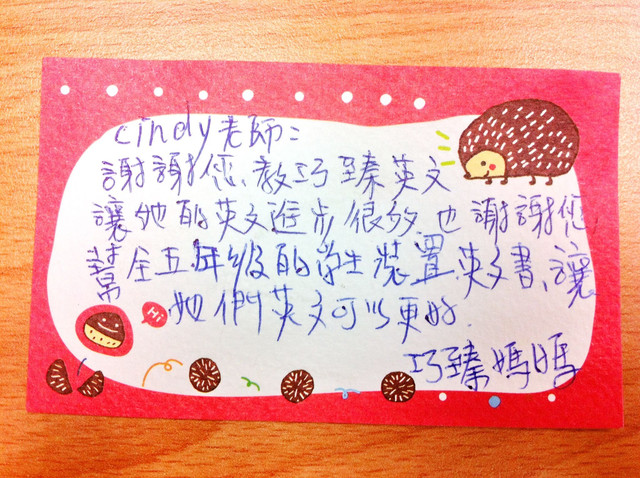 cindy老師:
謝謝您、教巧臻英文
讓她的英文進步很多 也謝謝您
幫全五年級的學生裝置英文書、讓
她們英文可以更好.
Hi
巧臻媽媽